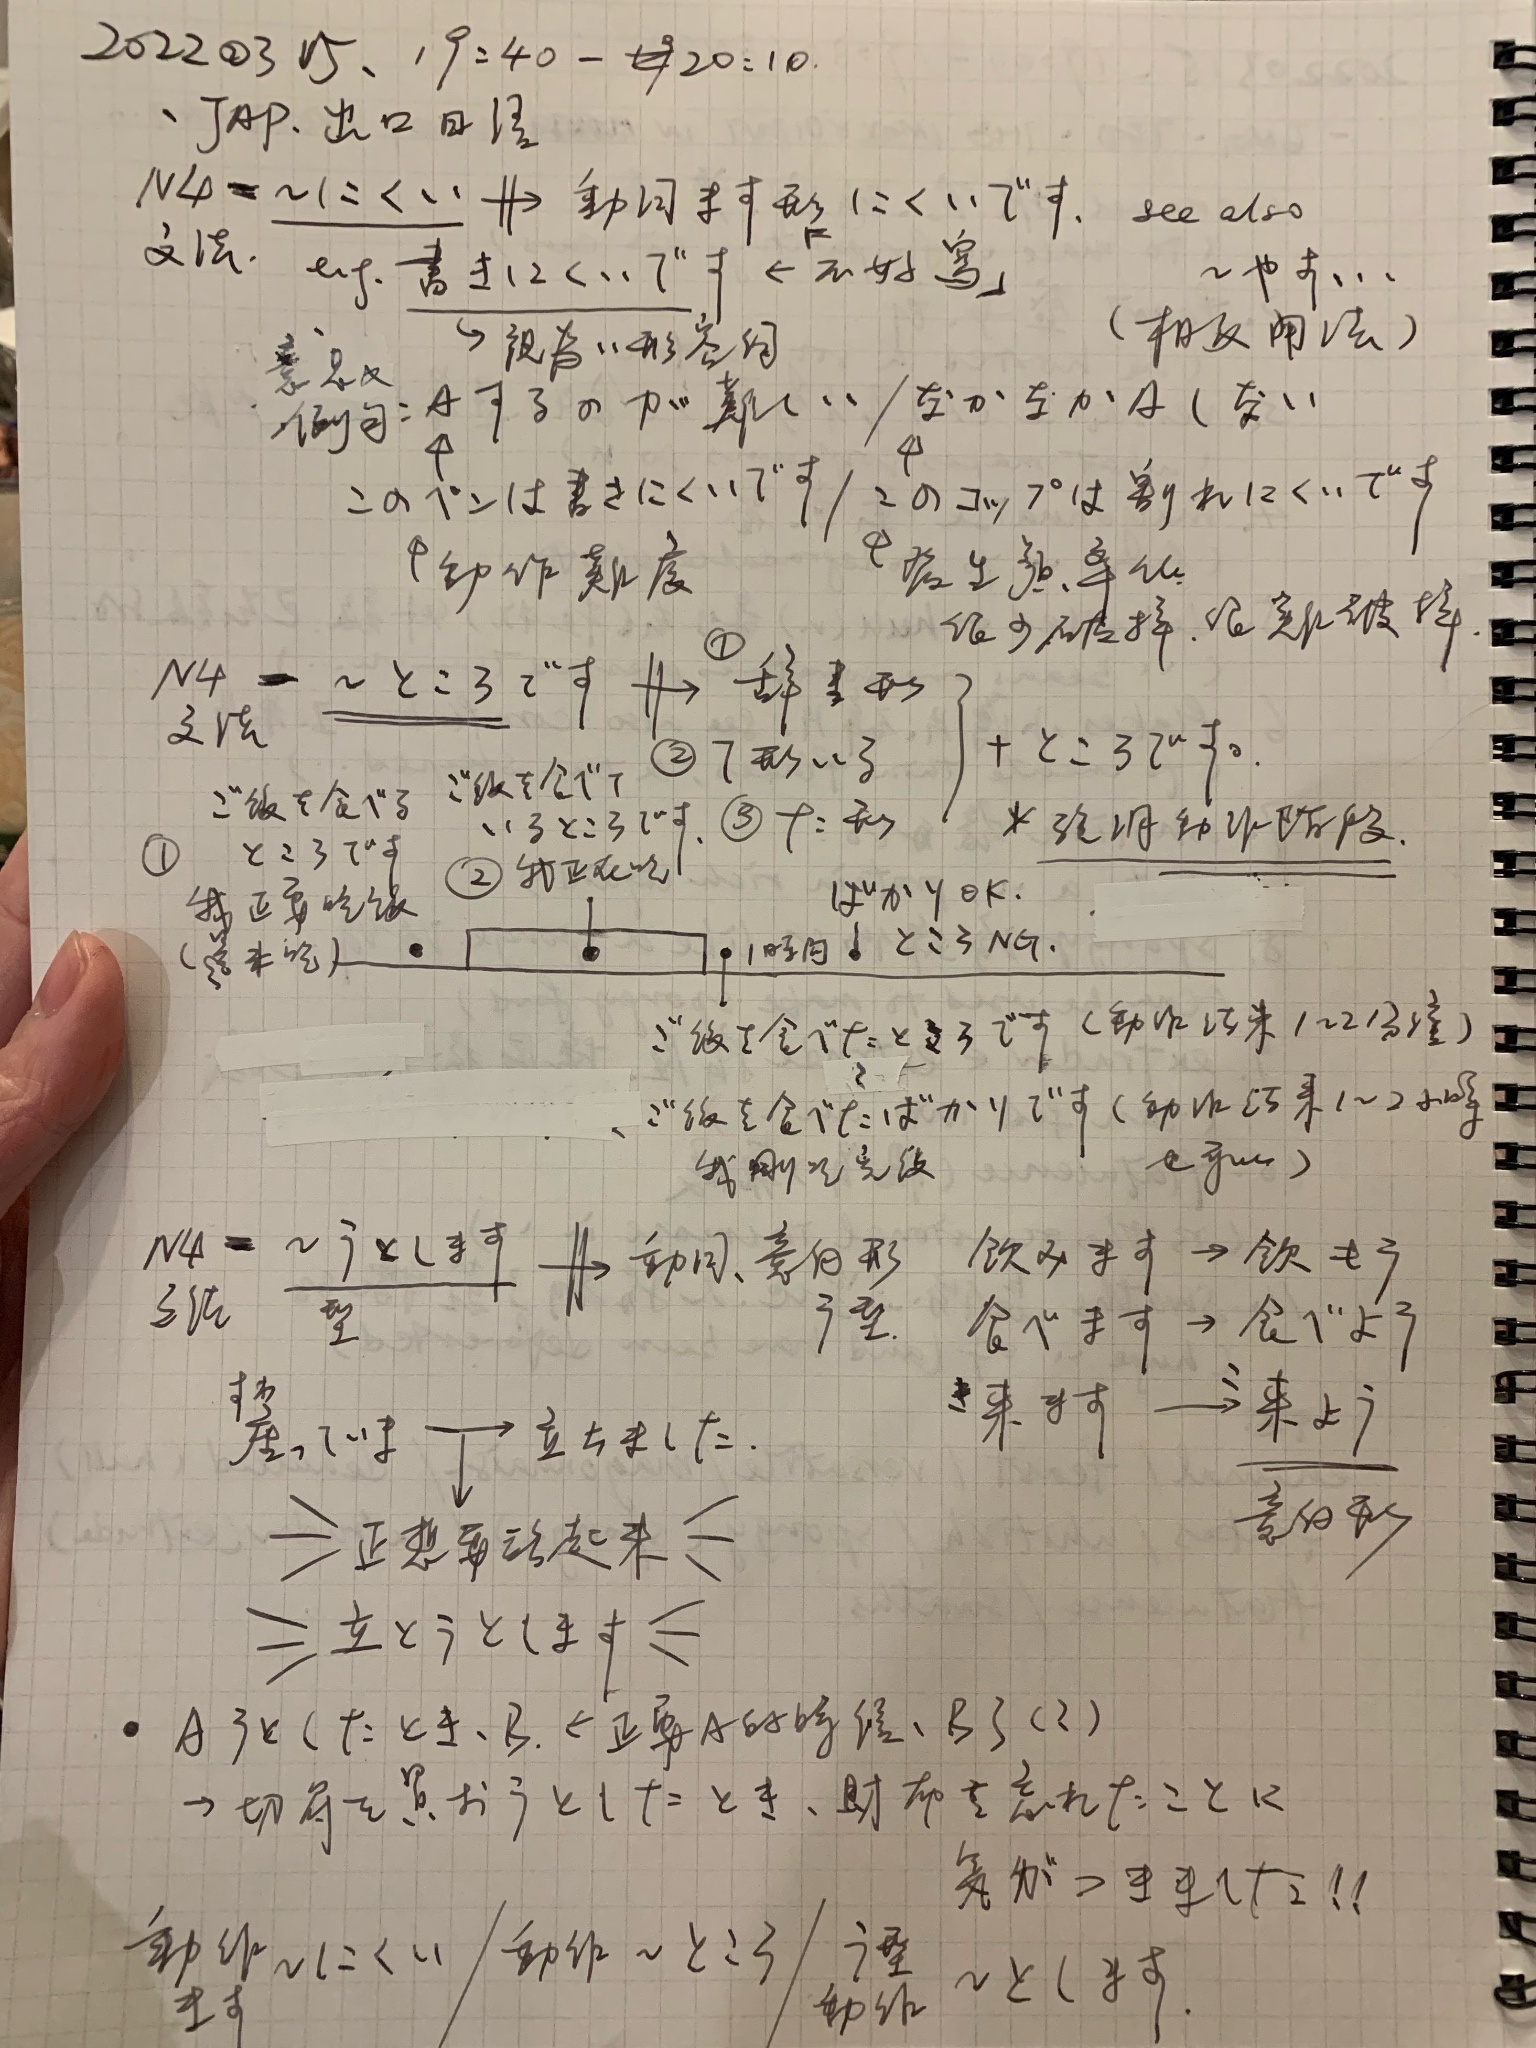 20220315、19:40-20:10.
、JAP. 出口日語
N4 = ~にくい ⇒ 動詞ます形にくいです. see also
文法. e.g. 書きにくいです ←「不好寫」 ~やす...
↳ 視為い形容詞 (相反用法)
意思&
例句: Aするのが難しい/なかなかAしない
↑ ↑
このペンは書きにくいです/このコップは割れにくいです
↑動作難度 ↑發生頻率低
很少破掉.很難破掉.
N4 = ~ところです ⇒ ①辞書形
文法 ②て形いる + ところです。
③た形 * 強調動作階段.
ご飯を食べる ご飯を食べて
① ところです いるところです.
我正要吃飯 ② 我正在吃
(還未吃) ばかりOK.
1時間 ところNG.
ご飯を食べたところです (動作結束1~2分鐘)
ご飯を食べたばかりです (動作結束1~2小時
我剛吃完飯 も可以)
N4 = ~うとします ⇒ 動詞、意向形 飲みます → 飲もう
文法 型 う型. 食べます → 食べよう
すわ き こ
座っていま → 立ちました. 来ます → 来よう
↓ 意向形
正想要站起來
立とうとします
• Aうとしたとき、B. ←正要A的時候、B了(?)
→ 切符を買おうとしたとき、財布を忘れたことに
気がつきました!!
動作 ~にくい / 動作~ところ / う型 ~とします.
ます 動作